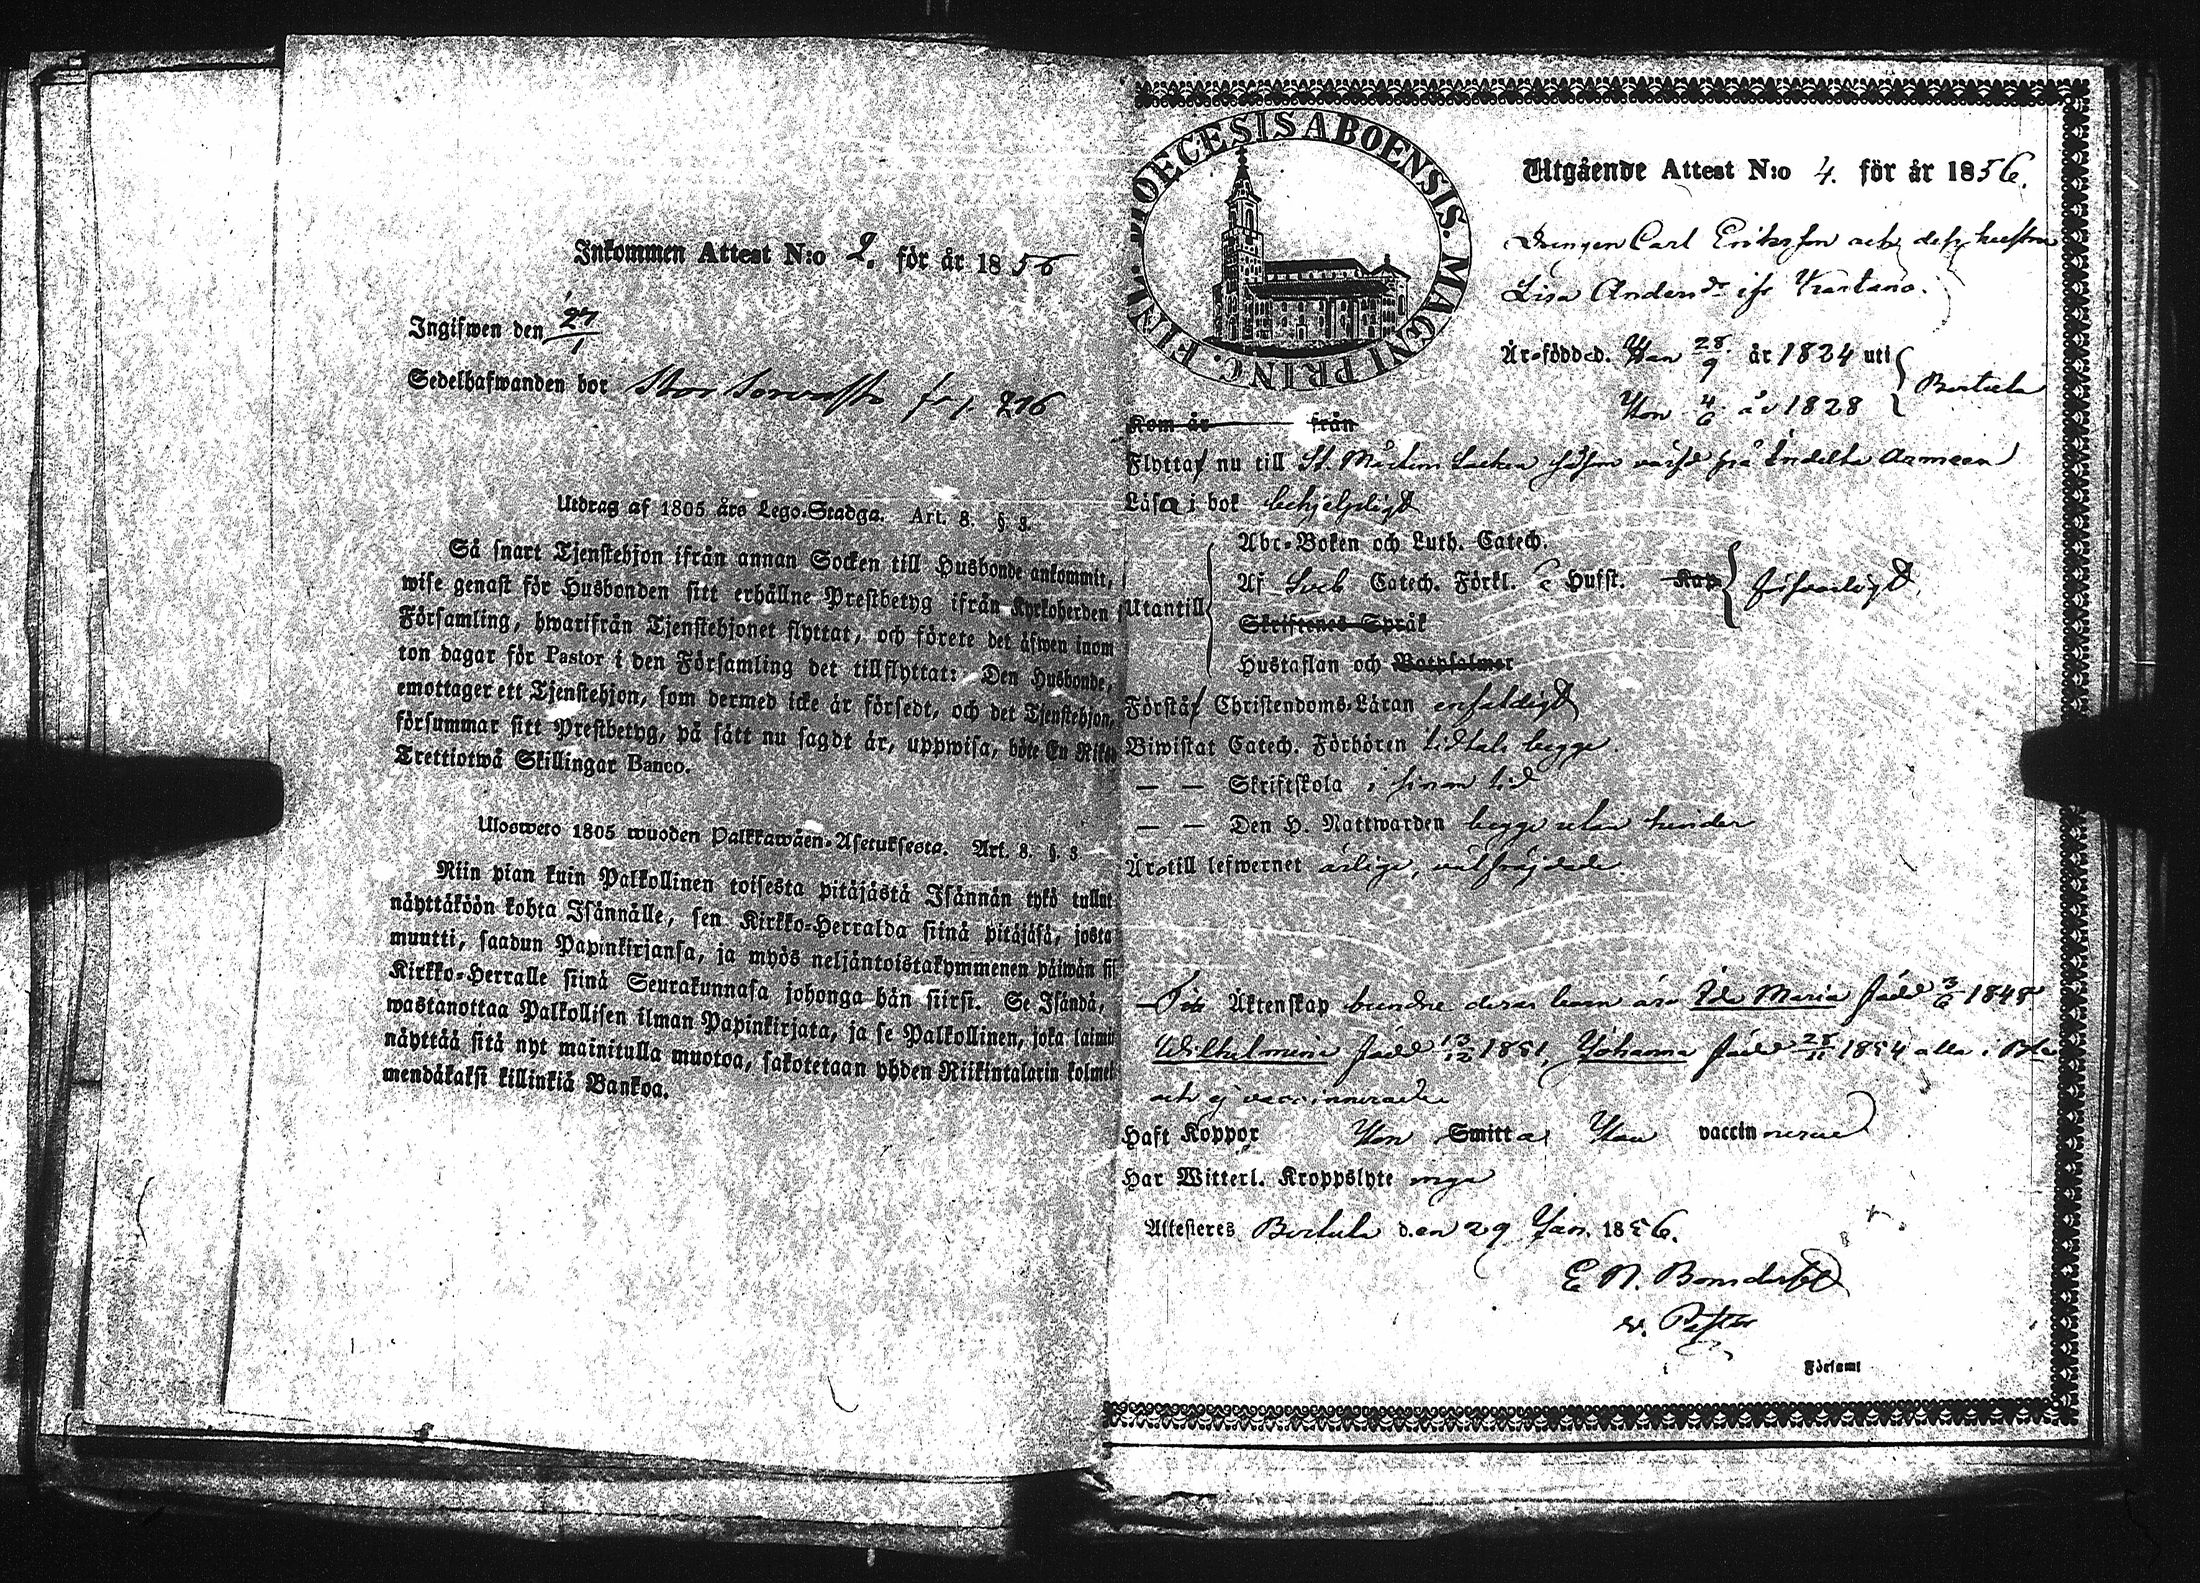 Inkommen Attest N:o 2. för år 1856
Ingifwen den 27/1
Sedelhafwanden bor
Utdrag af 1805 års Lego-Stadga. Art. 8. §. 3.
Så snart Tjenstehjon ifrån annan Socken till Husbonde ankommit,
wise genast för Husbonden sitt erhållne Prestbetyg ifrån Kyrkoherden
Församling, hwarifrån Tjenstehjonet flyttat, och förete det äfwen inom
ton dagar för Pastor i den Församling det tillflyttat: Den Husbonde,
emottager ett Tjenstehjon, som dermed icke är försedt, och det Tjenstehjon,
försummar sitt Prestbetyg, på sätt nu sagdt är, uppwisa, böte En Riks
Trettiotwå Skillingar Banco.
Ulosweto 1805 wuoden Palkkawäen-Asetuksesta. Art. 8. §. 3
Niin pian kuin Palkollinen toisesta pitäjästä Isännän tykö tullut
näyttäköön kohta Isännälle, sen Kirkko-Herralda siinä pitäjäsä, josta
muutti, saadun Papinkirjansa, ja myös neljäntoistakymmenen päiwän si
Kirkko-Herralle siinä Seurakunnasa johonga hän siirsi. Se Isändä,
wastanottaa Palkollisen ilman Papinkirjata, ja se Palkollinen, joka laimi
näyttää sitä nyt mainitulla muotoa, sakotetaan yhden Riikintalarin kolmet
mendäkaksi killinkiä Bankoa.
DIOECESIS ABOENSIS. MAGNI PRINC. FINL.
Utgående Attest N:o 4. för år 1856.
Drengen Carl Eriksson och dess hustru
Lisa Andersdr ifr Kartano.
Är födde d. Han 28/9 år 1824 uti
Hon 4/6 år 1828 Bertula
Kom år från
Flytta nu till St. Mårtens Socken på Indelta Armeen
Läsa i bok behjelpligt
Abc-Boken och Luth. Catech.
Utantill Af Sveb Catech. Förkl. Hufst. Kap försvarligt,
Skriftenes Språk
Hustaflan och Botpsalmer
Förstå Christendoms-Läran enfaldigt
Biwistat Catech. Förhören begge.
— — Skriftskola i sinom tid
— — Den H. Nattwarden begge utan hinder
Är till lefwernet ärlige, välfräjdade.
Äktenskap bundne deras barn äro Ida Maria född 3/6 1848
Wilhelmina född 13/12 1851, Johanna född 28/11 1854 alla i
och ej vaccinnerade
Haft Koppor Hon Smitta Han vaccinnerad
Har Witterl. Kroppslyte inga
Attesteres Bertula den 29 Jan. 1856.
E N. Bonsdorff
v. Pastor
i Församl